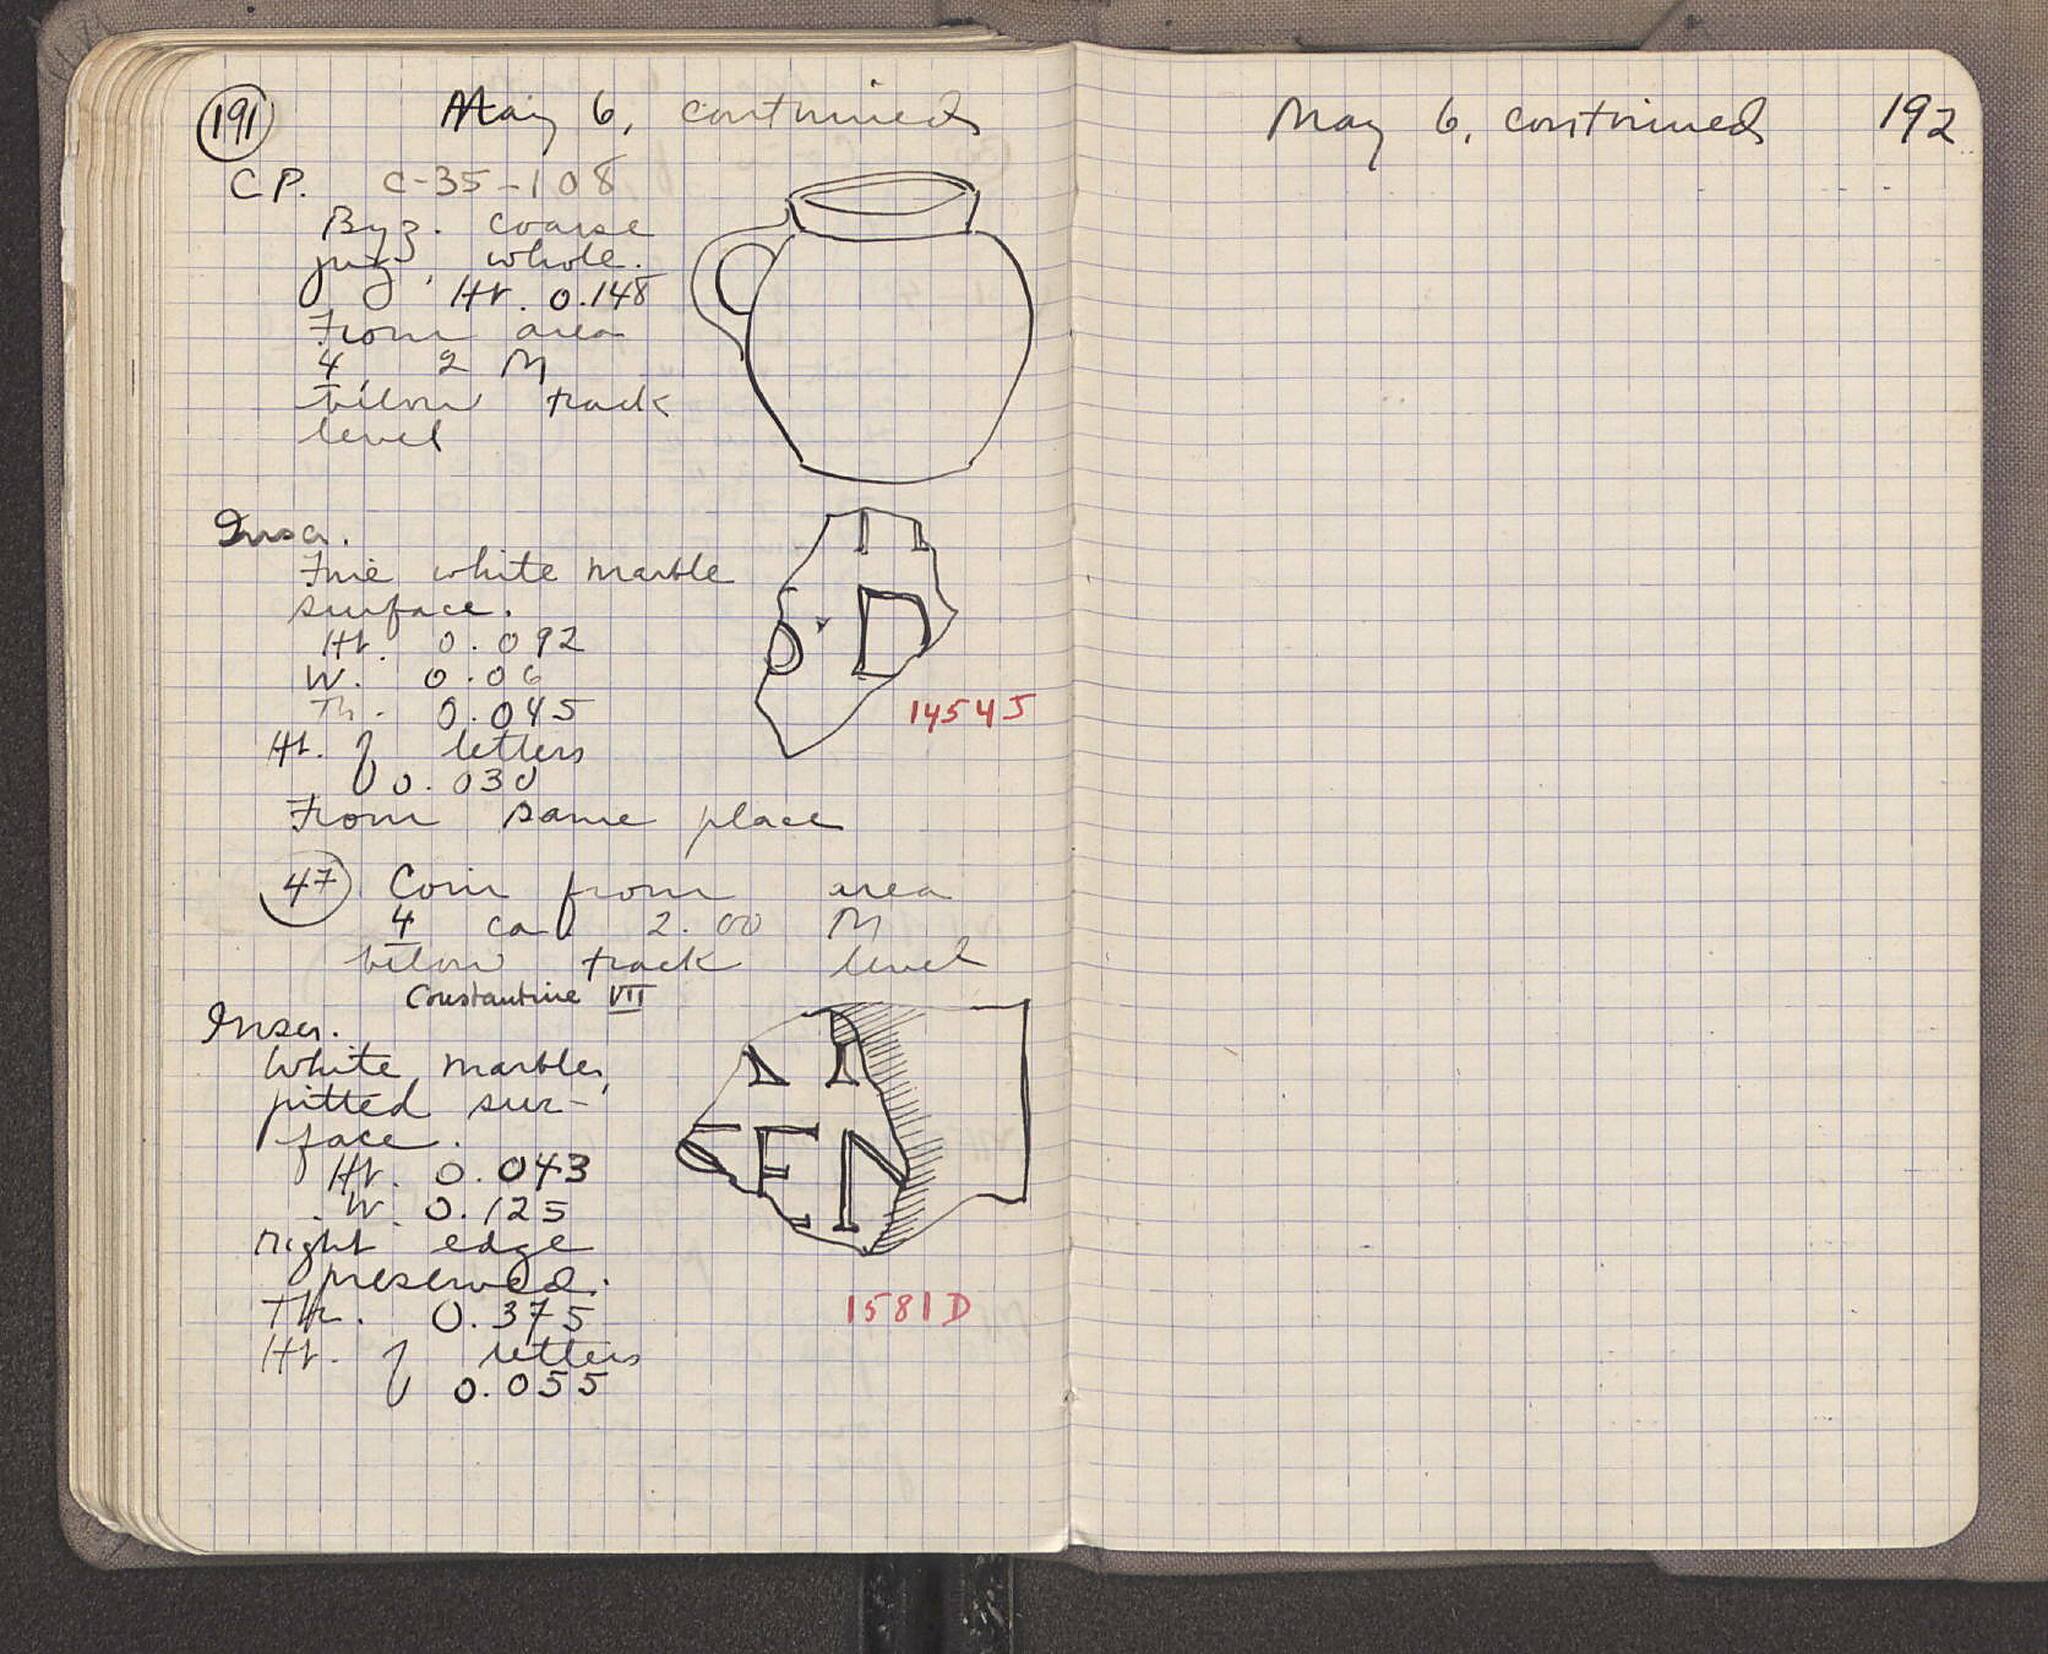 191 May 6, continued
C.P. C-35-108
Byz. coarse
jug, whole.
Ht. 0.148
From area
4 2 M
below track
level
Inscr.
Fine white marble
surface.
Ht. 0.092
W. 0.06
Th. 0.045
Ht. of letters
0.030
From same place
D
1454J
47 Coin from area
4 ca 2.00 M
below track level
Constantine VII
Inscr.
White marble,
pitted sur-
face.
Ht. 0.043
W. 0.125
Right edge
preserved.
Th. 0.375
Ht. of letters
0.055
EN
1581D
May 6, continued 192